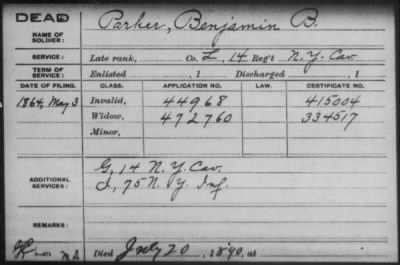 DEAD
NAME OF SOLDIER: Parker, Benjamin B.
SERVICE: Late rank, Co. L, 14 Reg't N.Y. Cav.
TERM OF SERVICE: Enlisted , 1 Discharged , 1
DATE OF FILING. CLASS. APPLICATION NO. LAW. CERTIFICATE NO.
1864, May 3 Invalid, 44968 415004
Widow, 472760 334517
Minor,
ADDITIONAL SERVICES: G, 14 N.Y. Cav.
I, 75 N.Y. Inf.
REMARKS:
Died July 20, 1890, at